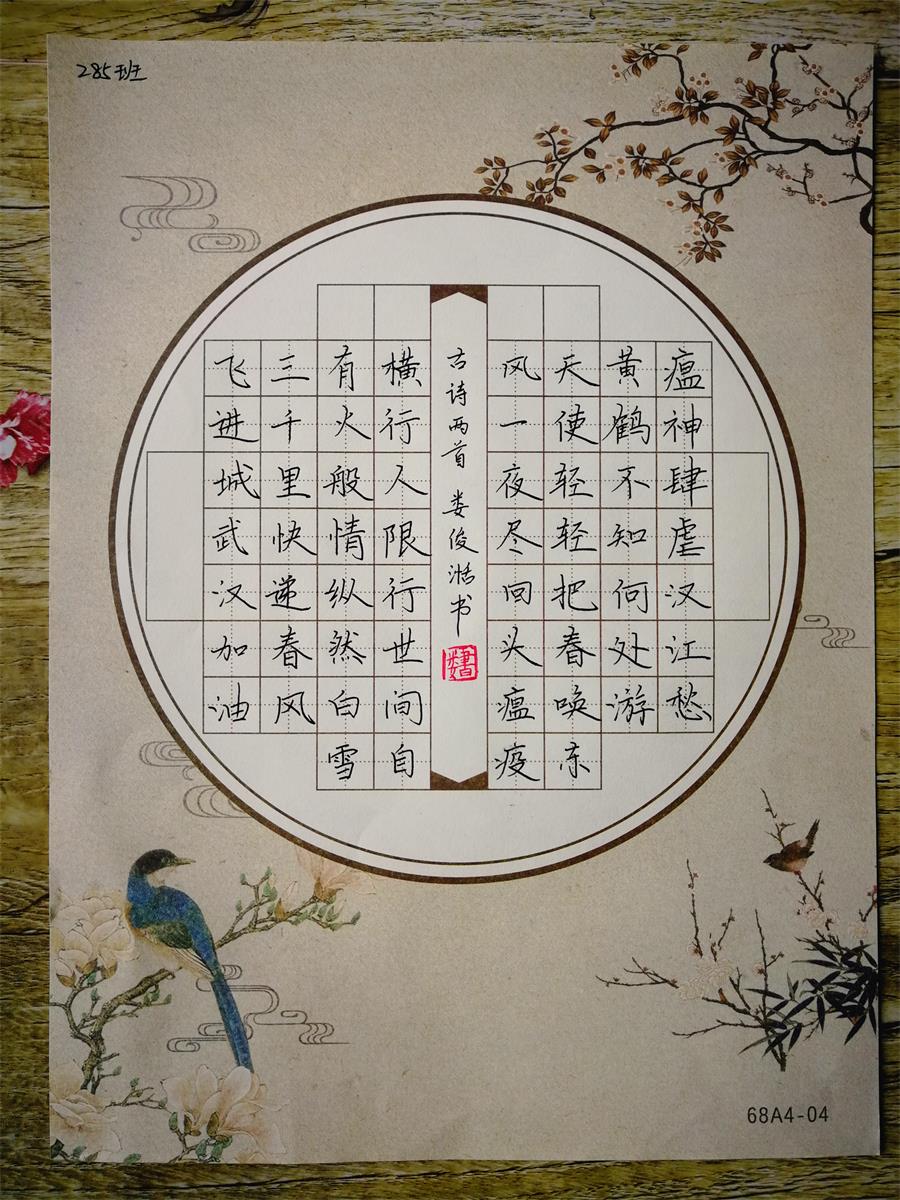 285班
瘟神肆虐汉江愁
黄鹤不知何处游
天使轻轻把春唤冻
风一夜尽回头瘟疫
古诗两首 娄俊湉书
横行人限行世间自
有火般情纵然白雪
三千里快递春风
飞进城武汉加油
68A4-04